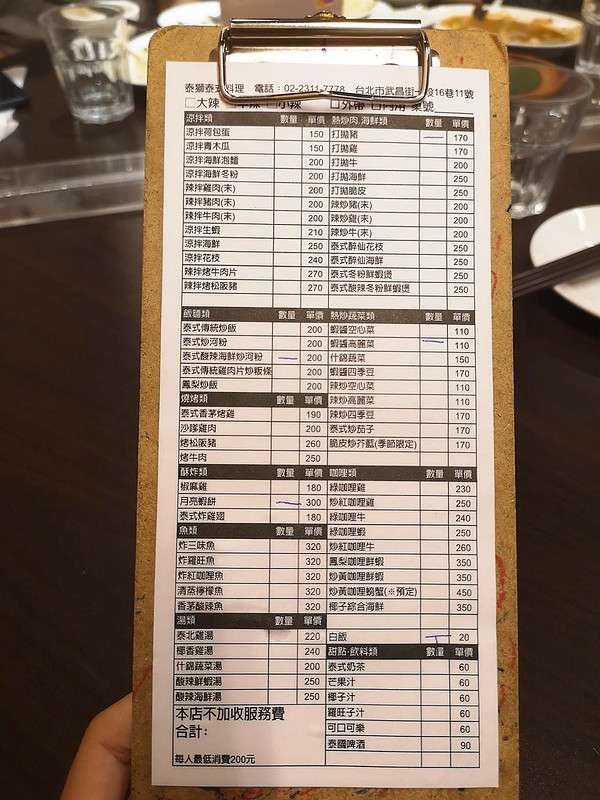 泰獅泰式料理 電話：02-2311-7778 台北市武昌街一段16巷11號
□大辣 中辣 □小辣 □外帶 □內用 桌號
涼拌類 數量 單價
涼拌荷包蛋 150
涼拌青木瓜 150
涼拌海鮮泡麵 200
涼拌海鮮冬粉 200
辣拌雞肉(末) 200
辣拌豬肉(末) 200
辣拌牛肉(末) 200
涼拌生蝦 210
涼拌海鮮 250
涼拌花枝 240
辣拌烤牛肉片 270
辣拌烤松阪豬 270
飯麵類 數量 單價
泰式傳統炒飯 200
泰式炒河粉 200
泰式酸辣海鮮炒河粉 200
泰式傳統雞肉片炒粄條 200
鳳梨炒飯 200
燒烤類 數量 單價
泰式香茅烤雞 190
沙嗲雞肉 200
烤松阪豬 260
烤牛肉 250
酥炸類 數量 單價
椒麻雞 180
月亮蝦餅 300
泰式炸雞翅 180
魚類 數量 單價
炸三味魚 320
炸羅旺魚 320
炸紅咖哩魚 320
清蒸檸檬魚 320
香茅酸辣魚 320
湯類 數量 單價
泰北雞湯 220
椰香雞湯 240
什錦蔬菜湯 200
酸辣鮮蝦湯 250
酸辣海鮮湯 250
本店不加收服務費
合計：
每人最低消費200元
熱炒肉,海鮮類 數量 單價
打拋豬 170
打拋雞 170
打拋牛 200
打拋海鮮 250
打拋脆皮 250
辣炒豬(末) 200
辣炒雞(末) 200
辣炒牛(末) 200
泰式醉仙花枝 250
泰式醉仙海鮮 250
泰式冬粉鮮蝦煲 250
泰式酸辣冬粉鮮蝦煲 250
熱炒蔬菜類 數量 單價
蝦醬空心菜 110
蝦醬高麗菜 110
什錦蔬菜 150
蝦醬四季豆 170
辣炒空心菜 110
辣炒高麗菜 110
辣炒四季豆 170
泰式炒茄子 170
脆皮炒芥藍(季節限定) 170
咖哩類 數量 單價
綠咖哩雞 230
炒紅咖哩雞 250
綠咖哩牛 240
綠咖哩蝦 250
炒紅咖哩牛 260
鳳梨咖哩鮮蝦 350
炒黃咖哩鮮蝦 350
炒黃咖哩螃蟹(※預定) 450
椰子綜合海鮮 350
白飯 20
甜點.飲料類 數量 單價
泰式奶茶 60
芒果汁 60
椰子汁 60
羅旺子汁 60
可口可樂 60
泰國啤酒 90